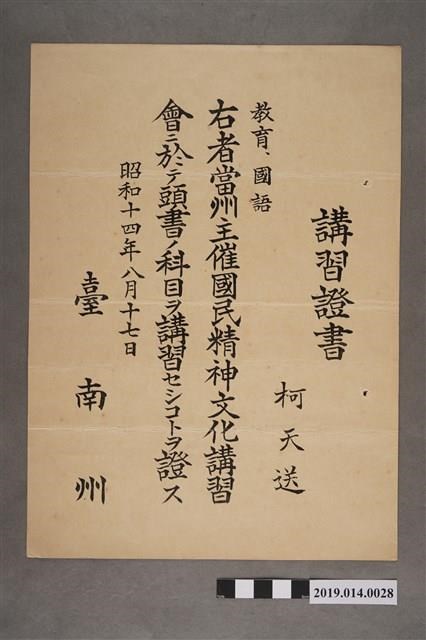 講習證書
柯天送
教育、國語
右者當州主催國民精神文化講習
會ニ於テ頭書ノ科目ヲ講習セシコトヲ證ス
昭和十四年八月十七日
臺南州
2019.014.0028